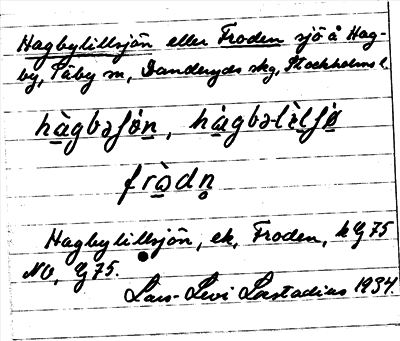 Hagbylillsjön eller Froden sjö å Hag-
by, Täby sn, Danderyds skg, Stockholms l.
hàgbəʃön, hàgbəlìlʃø
fròdn̥
Hagbylillsjön, ek, Froden, kg 75
NO, g 75.
Lars-Levi Læstadius 1934.